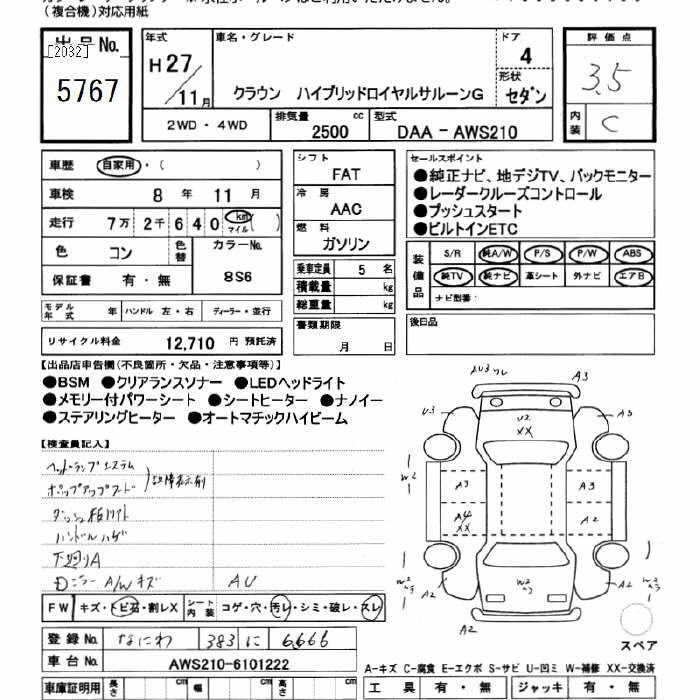 (複合機)対応用紙
出品No.
[2032]
5767
年式
H27/11月
車名・グレード
クラウン ハイブリッドロイヤルサルーンG
ドア
4
形状
セダン
評価点
3.5
内装
C
2WD・4WD
排気量
2500 cc
型式
DAA-AWS210
車歴 自家用・( )
車検 8年 11月
走行 7万2千640 km マイル ( )
色 コン
色替
カラーNo.
8S6
保証書 有・無
モデル年式 年
ハンドル 左・右
ディーラー・並行
リサイクル料金 12,710 円 預託済
シフト
FAT
冷房
AAC
燃料
ガソリン
乗車定員 5 名
積載量 kg
総重量 kg
書類期限
月 日
セールスポイント
●純正ナビ、地デジTV、バックモニター
●レーダークルーズコントロール
●プッシュスタート
●ビルトインETC
装備品
S/R 純A/W P/S P/W ABS
純TV 純ナビ 革シート 外ナビ エアB
ナビ型番:
後日品
【出品店申告欄(不良箇所・欠品・注意事項等)】
●BSM ●クリアランスソナー ●LEDヘッドライト
●メモリー付パワーシート ●シートヒーター ●ナノイー
●ステアリングヒーター ●オートマチックハイビーム
【検査員記入】
ヘッドランプシステム
ポップアップフード
故障表示有
ハンドルハゲ
下廻りA
A/Wキズ
AU
FW キズ・トビ石・割レX
シート内装 コゲ・穴・汚レ・シミ・破レ・スレ
登録No. なにわ 383 に 6666
車台No. AWS210-6101222
車庫証明用 長さ cm 幅 cm 高さ cm
A3
U3
U2
XX
A3
W2
A3
A3
A4
XX
A2
W2
W2
A2
A2
W3
A2
スペア
A-キズ C-腐食 E-エクボ S-サビ U-凹ミ W-補修 XX-交換済
工具 有・無
ジャッキ 有・無